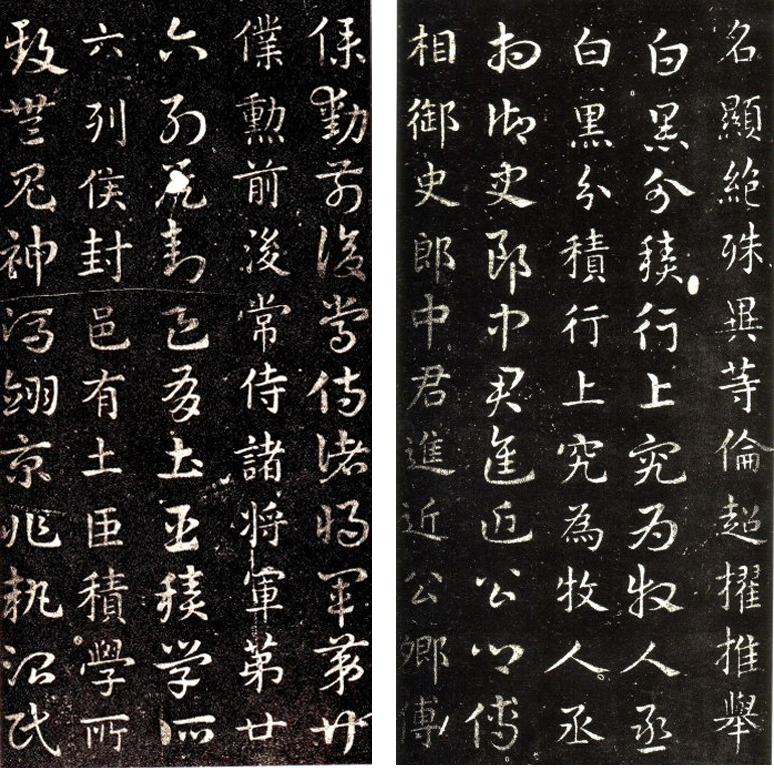 名顯絶殊異等倫超擢推舉
白黑分積行上究為牧人丞
白黑分積行上究為牧人丞
相御史郎中君進近公卿傅
相御史郎中君進近公卿傅
僕勳前後常侍諸將軍第廿
僕勳前後常侍諸將軍第廿
六列侯封邑有土臣積學所
六列侯封邑有土臣積學所
致無鬼神馮翊京兆執治民